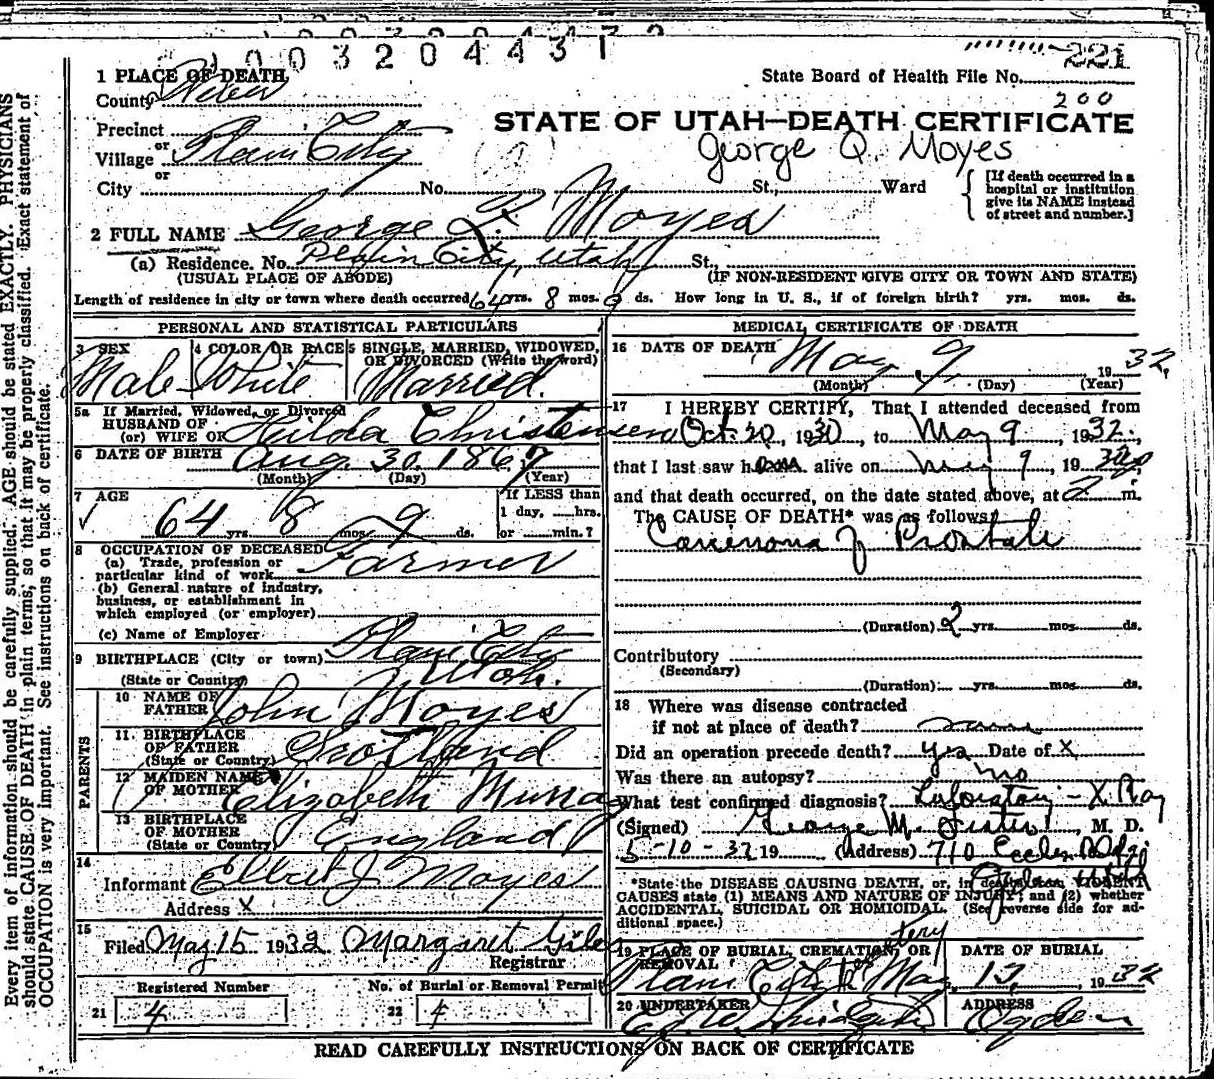 0032044372
221
1 PLACE OF DEATH
State Board of Health File No.
County Weber
200
Precinct
STATE OF UTAH—DEATH CERTIFICATE
or
Village Plain City
George Q. Moyes
or
City No. St., Ward
[If death occurred in a
hospital or institution
give its NAME instead
of street and number.]
2 FULL NAME George Q. Moyes
(a) Residence. No. Plain City, Utah St.,
(USUAL PLACE OF ABODE) (IF NON-RESIDENT GIVE CITY OR TOWN AND STATE)
Length of residence in city or town where death occurred 64 yrs. 8 mos. 9 ds. How long in U. S., if of foreign birth? yrs. mos. ds.
PERSONAL AND STATISTICAL PARTICULARS
3 SEX
Male
4 COLOR OR RACE
White
5 SINGLE, MARRIED, WIDOWED,
OR DIVORCED (Write the word)
Married.
5a If Married, Widowed, or Divorced
HUSBAND OF
(or) WIFE OF Hilda Christensen
6 DATE OF BIRTH Aug. 30. 1867
(Month) (Day) (Year)
7 AGE
64 yrs. 8 mos. 9 ds.
If LESS than
1 day, hrs.
or min.?
8 OCCUPATION OF DECEASED
(a) Trade, profession or
particular kind of work Farmer
(b) General nature of industry,
business, or establishment in
which employed (or employer)
(c) Name of Employer
9 BIRTHPLACE (City or town) Plain City
(State or Country) Utah.
PARENTS
10 NAME OF
FATHER John Moyes
11 BIRTHPLACE
OF FATHER
(State or Country) Scotland
12 MAIDEN NAME
OF MOTHER Elizabeth Murray
13 BIRTHPLACE
OF MOTHER
(State or Country) England
14
Informant Elbert J Moyes
Address X
15
Filed May 15 1932 Margaret Giles
Registrar
Registered Number No. of Burial or Removal Permit
21 4 22 4
MEDICAL CERTIFICATE OF DEATH
16 DATE OF DEATH May 9, 1932,
(Month) (Day) (Year)
17 I HEREBY CERTIFY, That I attended deceased from
Oct. 20, 1930, to May 9, 1932.,
that I last saw h alive on May 9, 19
and that death occurred, on the date stated above, at 2 m.
The CAUSE OF DEATH* was as follows:
Carcinoma of Prostate
(Duration) 2 yrs. mos. ds.
Contributory
(Secondary)
(Duration) yrs. mos. ds.
18 Where was disease contracted
if not at place of death? same
Did an operation precede death? Yes Date of X
Was there an autopsy? no
What test confirmed diagnosis? Laboratory - X Ray
(Signed) George M. M. D.
5-10-32 19 (Address) 710 Eccles Bldg
Ogden Utah
*State the DISEASE CAUSING DEATH, or, in deaths from VIOLENT
CAUSES state (1) MEANS AND NATURE OF INJURY; and (2) whether
ACCIDENTAL, SUICIDAL OR HOMICIDAL. (See reverse side for ad-
ditional space.)
19 PLACE OF BURIAL, CREMATION, OR
REMOVAL
Plain City
DATE OF BURIAL
May 12, 1932
20 UNDERTAKER
ADDRESS
Ogden
READ CAREFULLY INSTRUCTIONS ON BACK OF CERTIFICATE
Every item of information should be carefully supplied. AGE should be stated EXACTLY. PHYSICIANS
should state CAUSE OF DEATH in plain terms, so that it may be properly classified. Exact statement of
OCCUPATION is very important. See instructions on back of certificate.